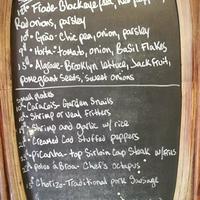 Frade-Blackeye pea, red pepper,
Red onions, parsley
10" Grão-Chic pea, onion, parsley
9" Horta-tomato, onion, Basil Flakes
13" Algarve-Brooklyn lettuce, Jackfruit,
pomegranet Seeds, sweet onions
Small plates
Caracóis-Garden Snails
Shrimp or Veal Fritters
Shrimp and garlic w/ rice
Creamed Cod Stuffed peppers
Picanha-top Sirloin Cap Steak w/
Chef's Octopus
Choriço-Traditional pork Sausage